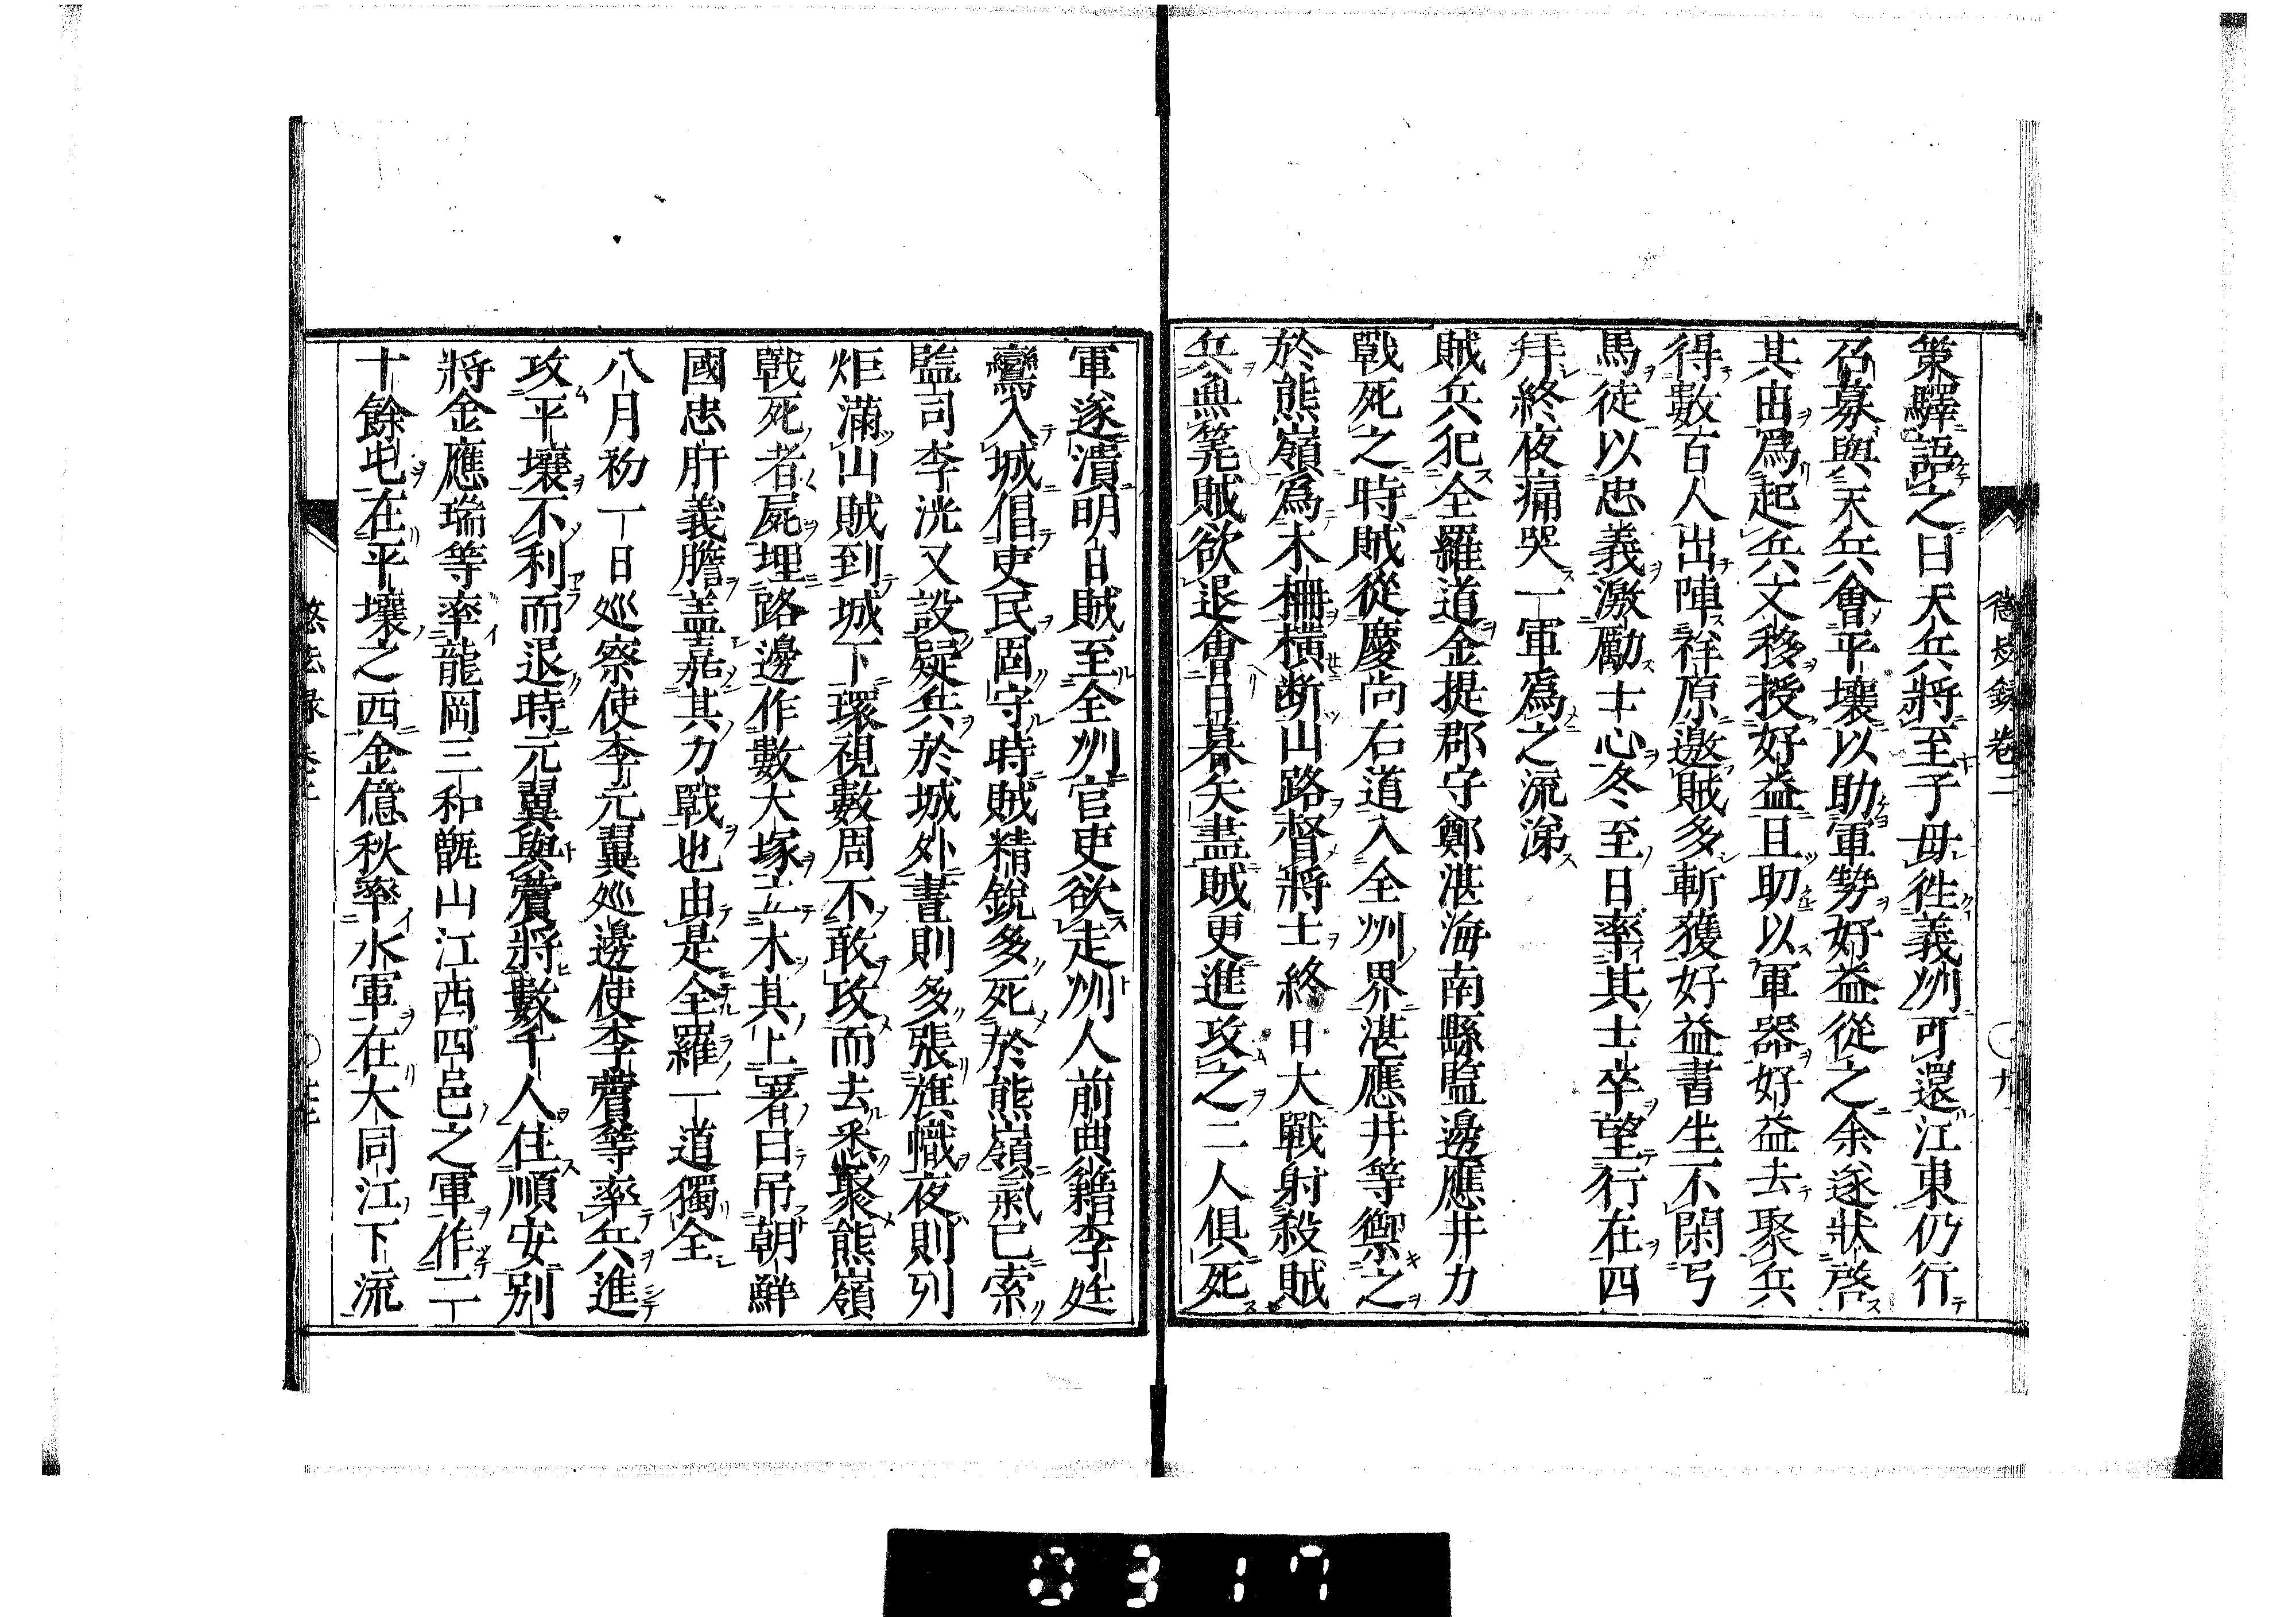 策驛語之曰天兵將至子毋徃義州可還江東仍行
召募與天兵會平壤以助軍勢好益從之余遂狀啓
其由爲起兵文移授好益且助以軍器好益去聚兵
得數百人出陣祥原邀賊多斬獲好益書生不閑弓
馬徒以忠義激勵士心冬至日率其士卒望行在四
拜終夜痛哭一軍爲之流涕
賊兵犯全羅道金提郡守鄭湛海南縣監邊應井力
戰死之時賊從慶尚右道入全州界湛應井等禦之
於熊嶺爲木柵橫断山路督將士終日大戰射殺賊
兵無筭賊欲退會日暮矢盡賊更進攻之二人俱死
軍遂潰明日賊至全州官吏欲走州人前典籍李廷
鸞入城倡吏民固守時賊精銳多死於熊嶺氣已索
監司李洸又設疑兵於城外晝則多張旗幟夜則列
炬滿山賊到城下環視數周不敢攻而去悉聚熊嶺
戰死者屍埋路邊作數大塚立木其上署曰吊朝鮮
國忠肝義膽盖嘉其力戰也由是全羅一道獨全
八月初一日巡察使李元翼巡邊使李薲等率兵進
攻平壤不利而退時元翼與薲將數千人住順安別
將金應瑞等率龍岡三和甑山江西四邑之軍作二
十餘屯在平壤之西金億秋率水軍在大同江下流
懲毖録卷二
〇九
0317